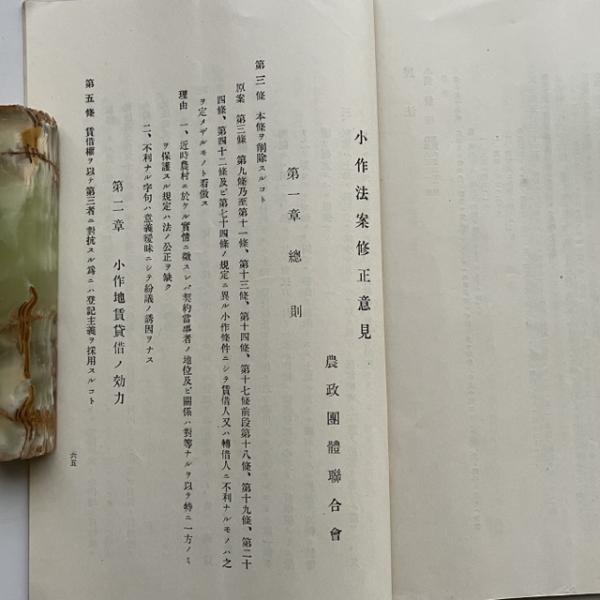 小作法案修正意見
農政團體聯合會
第一章 總則
第三條 本條ヲ削除スルコト
原案 第三條 第九條乃至第十一條、第十三條、第十四條、第十七條前段第十八條、第十九條、第二十
四條、第四十二條及ビ第七十四條ノ規定ニ異ル小作條件ニシテ賃借人又ハ轉借人ニ不利ナルモノハ之
ヲ定メザルモノト看做ス
理由 一、近時農村ニ於ケル實情ニ徵スレバ契約當事者ノ地位及ビ關係ハ對等ナルヲ以テ特ニ一方ノミ
ヲ保護スル規定ハ法ノ公正ヲ缺ク
二、不利ナル字句ハ意義曖昧ニシテ紛議ノ誘因ヲナス
第二章 小作地賃貸借ノ効力
第五條 賃借權ヲ以テ第三者ニ對抗スル爲ニハ登記主義ヲ採用スルコト
六五